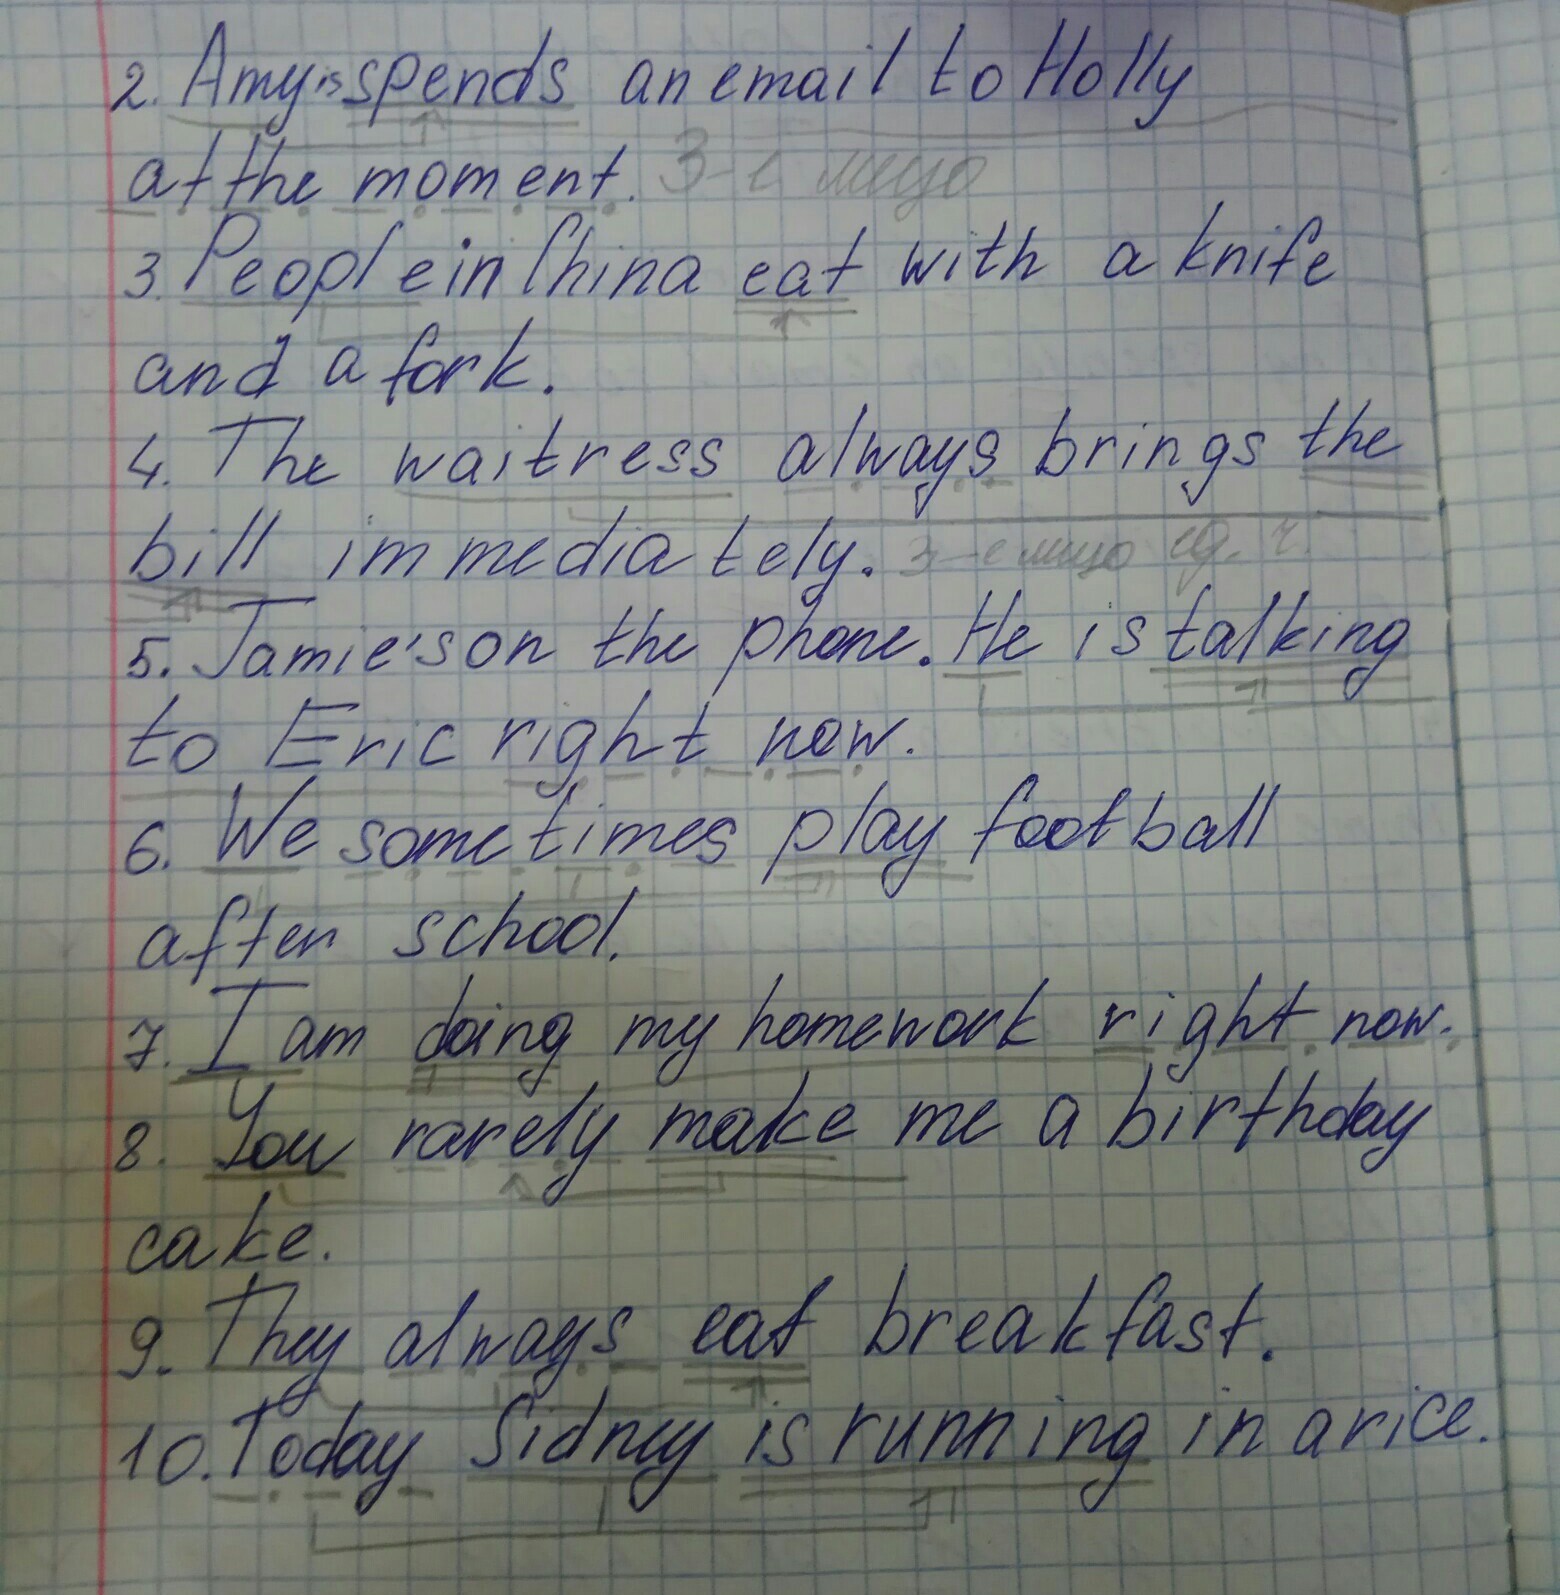 2. Amy is spends an email to Holly
at the moment. 3-е лицо
3. People in China eat with a knife
and a fork.
4. The waitress always brings the
bill immediately. 3-е лицо ед. ч.
5. Jamie's on the phone. He is talking
to Eric right now.
6. We sometimes play football
after school.
7. I am doing my homework right now.
8. You rarely make me a birthday
cake.
9. They always eat breakfast.
10. Today Sidney is running in a rice.